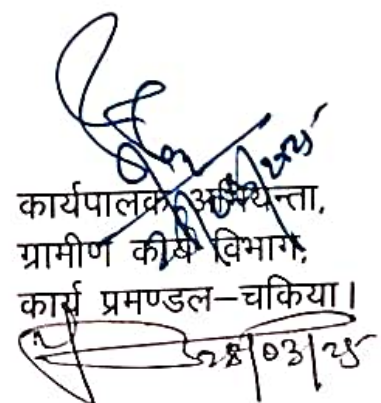 कार्यपालक अभियन्ता,
ग्रामीण कार्य विभाग,
कार्य प्रमण्डल–चकिया।
28/03/25